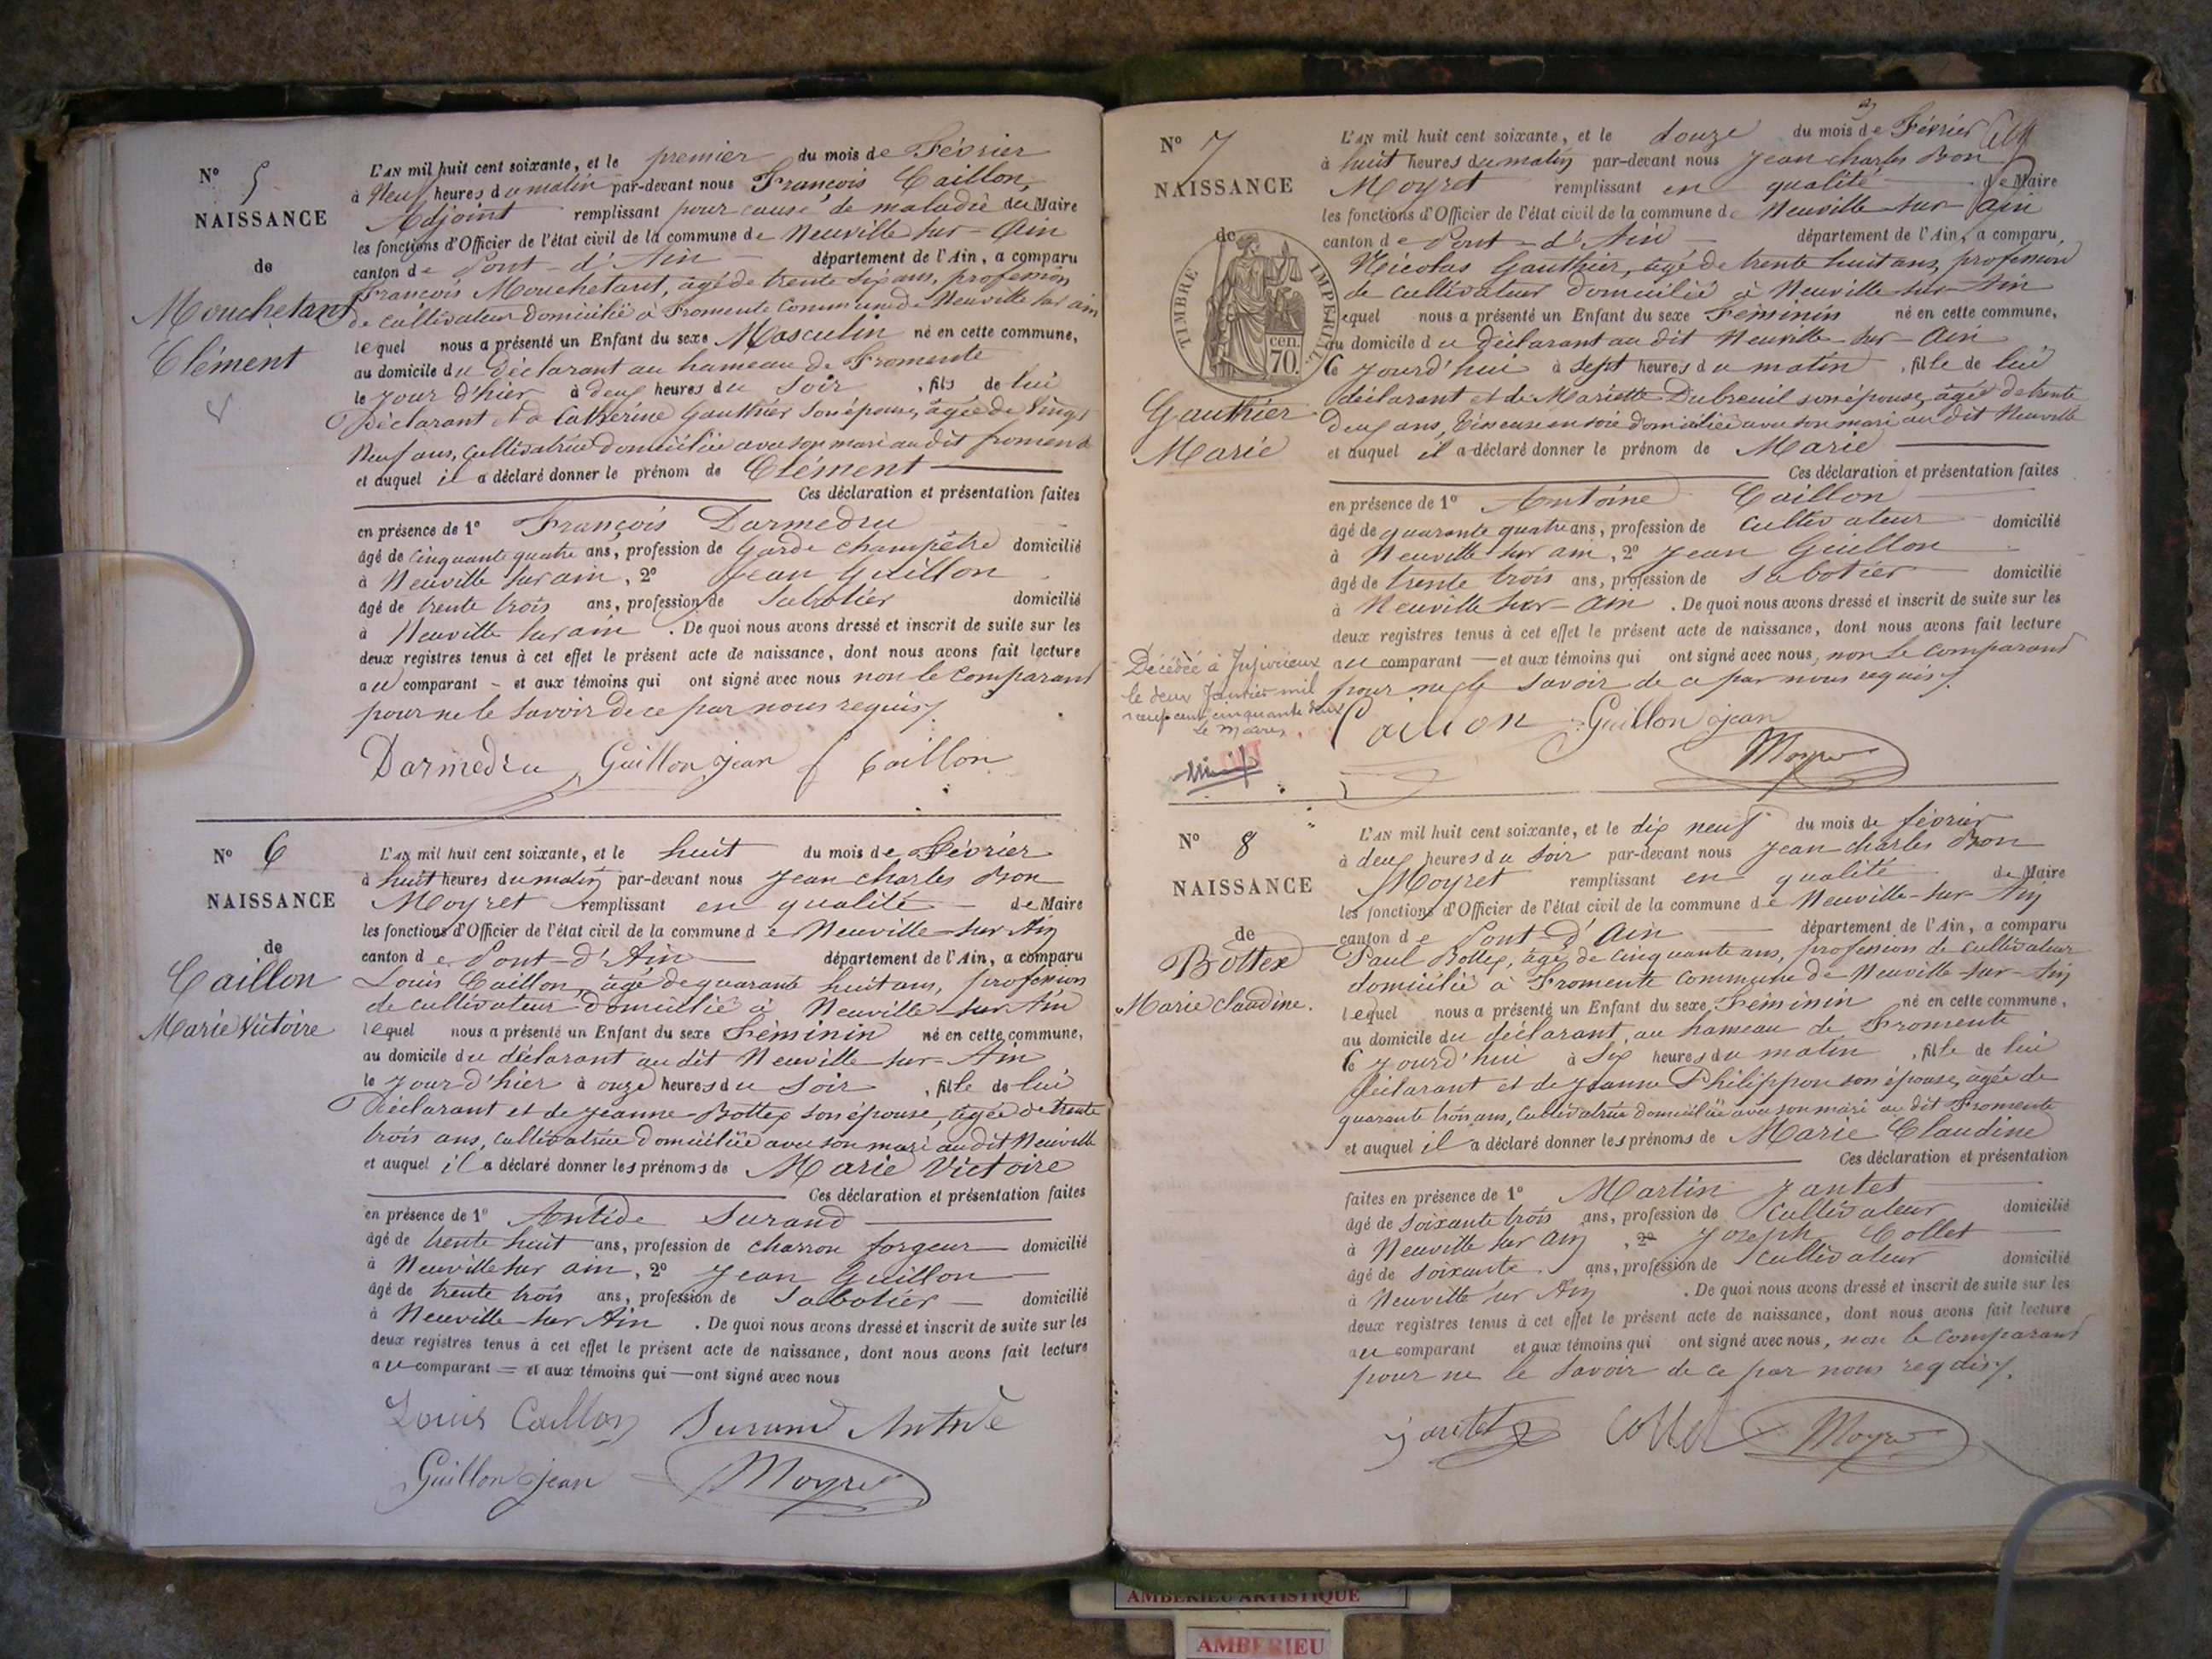 N° 5
NAISSANCE
de
Mouchetant
Clément
L'AN mil huit cent soixante, et le premier du mois de Février
à Neuf heures du matin par-devant nous François Caillon,
Adjoint remplissant pour cause de maladie du Maire
les fonctions d'Officier de l'état civil de la commune de Neuville sur - Ain
canton de Pont - d'Ain département de l'Ain, a comparu
François Mouchetant, âgé de trente six ans, profession
de cultivateur domicilié à Fromente Commune de Neuville sur ain
lequel nous a présenté un Enfant du sexe Masculin né en cette commune,
au domicile du déclarant au hameau de Fromente
le jour d'hier à deux heures du soir, fils de lui
Déclarant et de Catherine Gauthier son épouse, âgée de vingt
Neuf ans, cultivatrice domiciliée avec son mari au dit fromente
et auquel il a déclaré donner le prénom de Clément
Ces déclaration et présentation faites
en présence de 1° François Darmedru
âgé de cinquante quatre ans, profession de Garde champêtre domicilié
à Neuville sur ain, 2° Jean Guillon
âgé de trente trois ans, profession de Sabotier domicilié
à Neuville sur ain. De quoi nous avons dressé et inscrit de suite sur les
deux registres tenus à cet effet le présent acte de naissance, dont nous avons fait lecture
au comparant - et aux témoins qui ont signé avec nous non le comparant
pour ne le savoir de ce par nous requis.
Darmedru Guillon jean f Caillon
N° 6
NAISSANCE
de
Caillon
Marie Victoire
L'AN mil huit cent soixante, et le huit du mois de Février
à huit heures du matin par-devant nous Jean charles Bon
Moyret remplissant en qualité - de Maire
les fonctions d'Officier de l'état civil de la commune de Neuville - sur Ain
canton de Pont - d'Ain département de l'Ain, a comparu
Louis Caillon, âgé de quarante huit ans, profession
de cultivateur domicilié à Neuville - sur Ain
lequel nous a présenté un Enfant du sexe Féminin né en cette commune,
au domicile du déclarant au dit Neuville - sur - Ain
le jour d'hier à onze heures du soir, fille de lui
Déclarant et de Jeanne Bottex son épouse, âgée de trente
trois ans, cultivatrice domiciliée avec son mari au dit Neuville
et auquel il a déclaré donner les prénoms de Marie Victoire
Ces déclaration et présentation faites
en présence de 1° Antide Durand
âgé de trente huit ans, profession de charron forgeur domicilié
à Neuville sur ain, 2° Jean Guillon
âgé de trente trois ans, profession de Sabotier - domicilié
à Neuville - sur Ain. De quoi nous avons dressé et inscrit de suite sur les
deux registres tenus à cet effet le présent acte de naissance, dont nous avons fait lecture
au comparant = et aux témoins qui - ont signé avec nous
Louis Caillon Durand Antide
Guillon jean Moyret
N° 7
NAISSANCE
de
TIMBRE IMPERIAL
cen.
70.
Gauthier
Marie
L'AN mil huit cent soixante, et le douze du mois de Février
à huit heures du matin par-devant nous Jean charles Bon
Moyret remplissant en qualité de Maire
les fonctions d'Officier de l'état civil de la commune de Neuville - sur - Ain
canton de Pont - d'Ain - département de l'Ain, a comparu,
Nicolas Gauthier, âgé de trente huit ans, profession
de cultivateur domicilié à Neuville - sur - Ain
lequel nous a présenté un Enfant du sexe Féminin né en cette commune,
au domicile du déclarant au dit Neuville - sur - Ain
Ce jourd'hui à sept heures du matin, fille de lui
déclarant et de Mariette Dubreuil son épouse, âgée de trente
deux ans, tisseuse en soie domiciliée avec son mari au dit Neuville
et auquel il a déclaré donner le prénom de Marie
Ces déclaration et présentation faites
en présence de 1° Antoine Caillon
âgé de quarante quatre ans, profession de cultivateur domicilié
à Neuville sur ain, 2° Jean Guillon
âgé de trente trois ans, profession de sabotier domicilié
à Neuville sur - Ain. De quoi nous avons dressé et inscrit de suite sur les
deux registres tenus à cet effet le présent acte de naissance, dont nous avons fait lecture
au comparant - et aux témoins qui ont signé avec nous, non le comparant
pour ne le savoir de ce par nous requis.
Décédée à Jujurieux
le deux Janvier mil
neuf cent cinquante deux
Le Maire,
Caillon Guillon jean
Moyret
N° 8
NAISSANCE
de
Bottex
Marie Claudine.
L'AN mil huit cent soixante, et le dix neuf du mois de février
à deux heures du soir par-devant nous Jean charles Bon
Moyret remplissant en qualité de Maire
les fonctions d'Officier de l'état civil de la commune de Neuville - sur - Ain
canton de Pont - d'Ain département de l'Ain, a comparu
Paul Bottex, âgé de cinquante ans, profession de cultivateur
domicilié à Fromente Commune de Neuville - sur - Ain
lequel nous a présenté un Enfant du sexe Féminin né en cette commune,
au domicile du déclarant, au hameau de Fromente
Ce jourd'hui à six heures du matin, fille de lui
déclarant et de Jeanne Philippon son épouse, âgée de
quarante trois ans, cultivatrice domiciliée avec son mari au dit Fromente
et auquel il a déclaré donner les prénoms de Marie Claudine
Ces déclaration et présentation
faites en présence de 1° Martin Jantet
âgé de soixante trois ans, profession de cultivateur domicilié
à Neuville sur Ain, 2° Joseph Collet
âgé de soixante ans, profession de cultivateur domicilié
à Neuville sur Ain. De quoi nous avons dressé et inscrit de suite sur les
deux registres tenus à cet effet le présent acte de naissance, dont nous avons fait lecture
au comparant et aux témoins qui ont signé avec nous, non le comparant
pour ne le savoir de ce par nous requis.
jantet Collet Moyret
AMBERIEU ARTISTIQUE
AMBERIEU